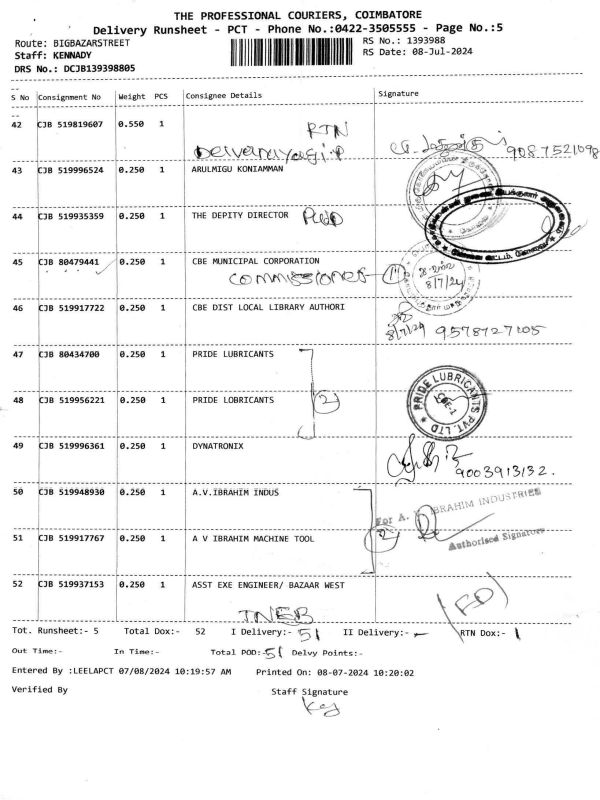 THE PROFESSIONAL COURIERS, COIMBATORE
Delivery Runsheet - PCT - Phone No.:0422-3505555 - Page No.:5
Route: BIGBAZARSTREET RS No.: 1393988
Staff: KENNADY RS Date: 08-Jul-2024
DRS No.: DCJB139398805
S No Consignment No Weight PCS Consignee Details Signature
42 CJB 519819607 0.550 1 RTN
9087521098
43 CJB 519996524 0.250 1 ARULMIGU KONIAMMAN
44 CJB 519935359 0.250 1 THE DEPITY DIRECTOR
45 CJB 80479441 0.250 1 CBE MUNICIPAL CORPORATION
commissioner 8/7/24
46 CJB 519917722 0.250 1 CBE DIST LOCAL LIBRARY AUTHORI
8/7/24 9578727105
47 CJB 80434700 0.250 1 PRIDE LUBRICANTS
48 CJB 519956221 0.250 1 PRIDE LOBRICANTS 2
PRIDE LUBRICANTS PVT. LTD
CBE-1
49 CJB 519996361 0.250 1 DYNATRONIX
9003913132.
50 CJB 519948930 0.250 1 A.V.IBRAHIM INDUS
For A. V. IBRAHIM INDUSTRIES
51 CJB 519917767 0.250 1 A V IBRAHIM MACHINE TOOL 2
Authorised Signatory
52 CJB 519937153 0.250 1 ASST EXE ENGINEER/ BAZAAR WEST
TNEB
Tot. Runsheet:- 5 Total Dox:- 52 I Delivery:- 51 II Delivery:- - RTN Dox:- 1
Out Time:- In Time:- Total POD:- 51 Delvy Points:-
Entered By :LEELAPCT 07/08/2024 10:19:57 AM Printed On: 08-07-2024 10:20:02
Verified By Staff Signature